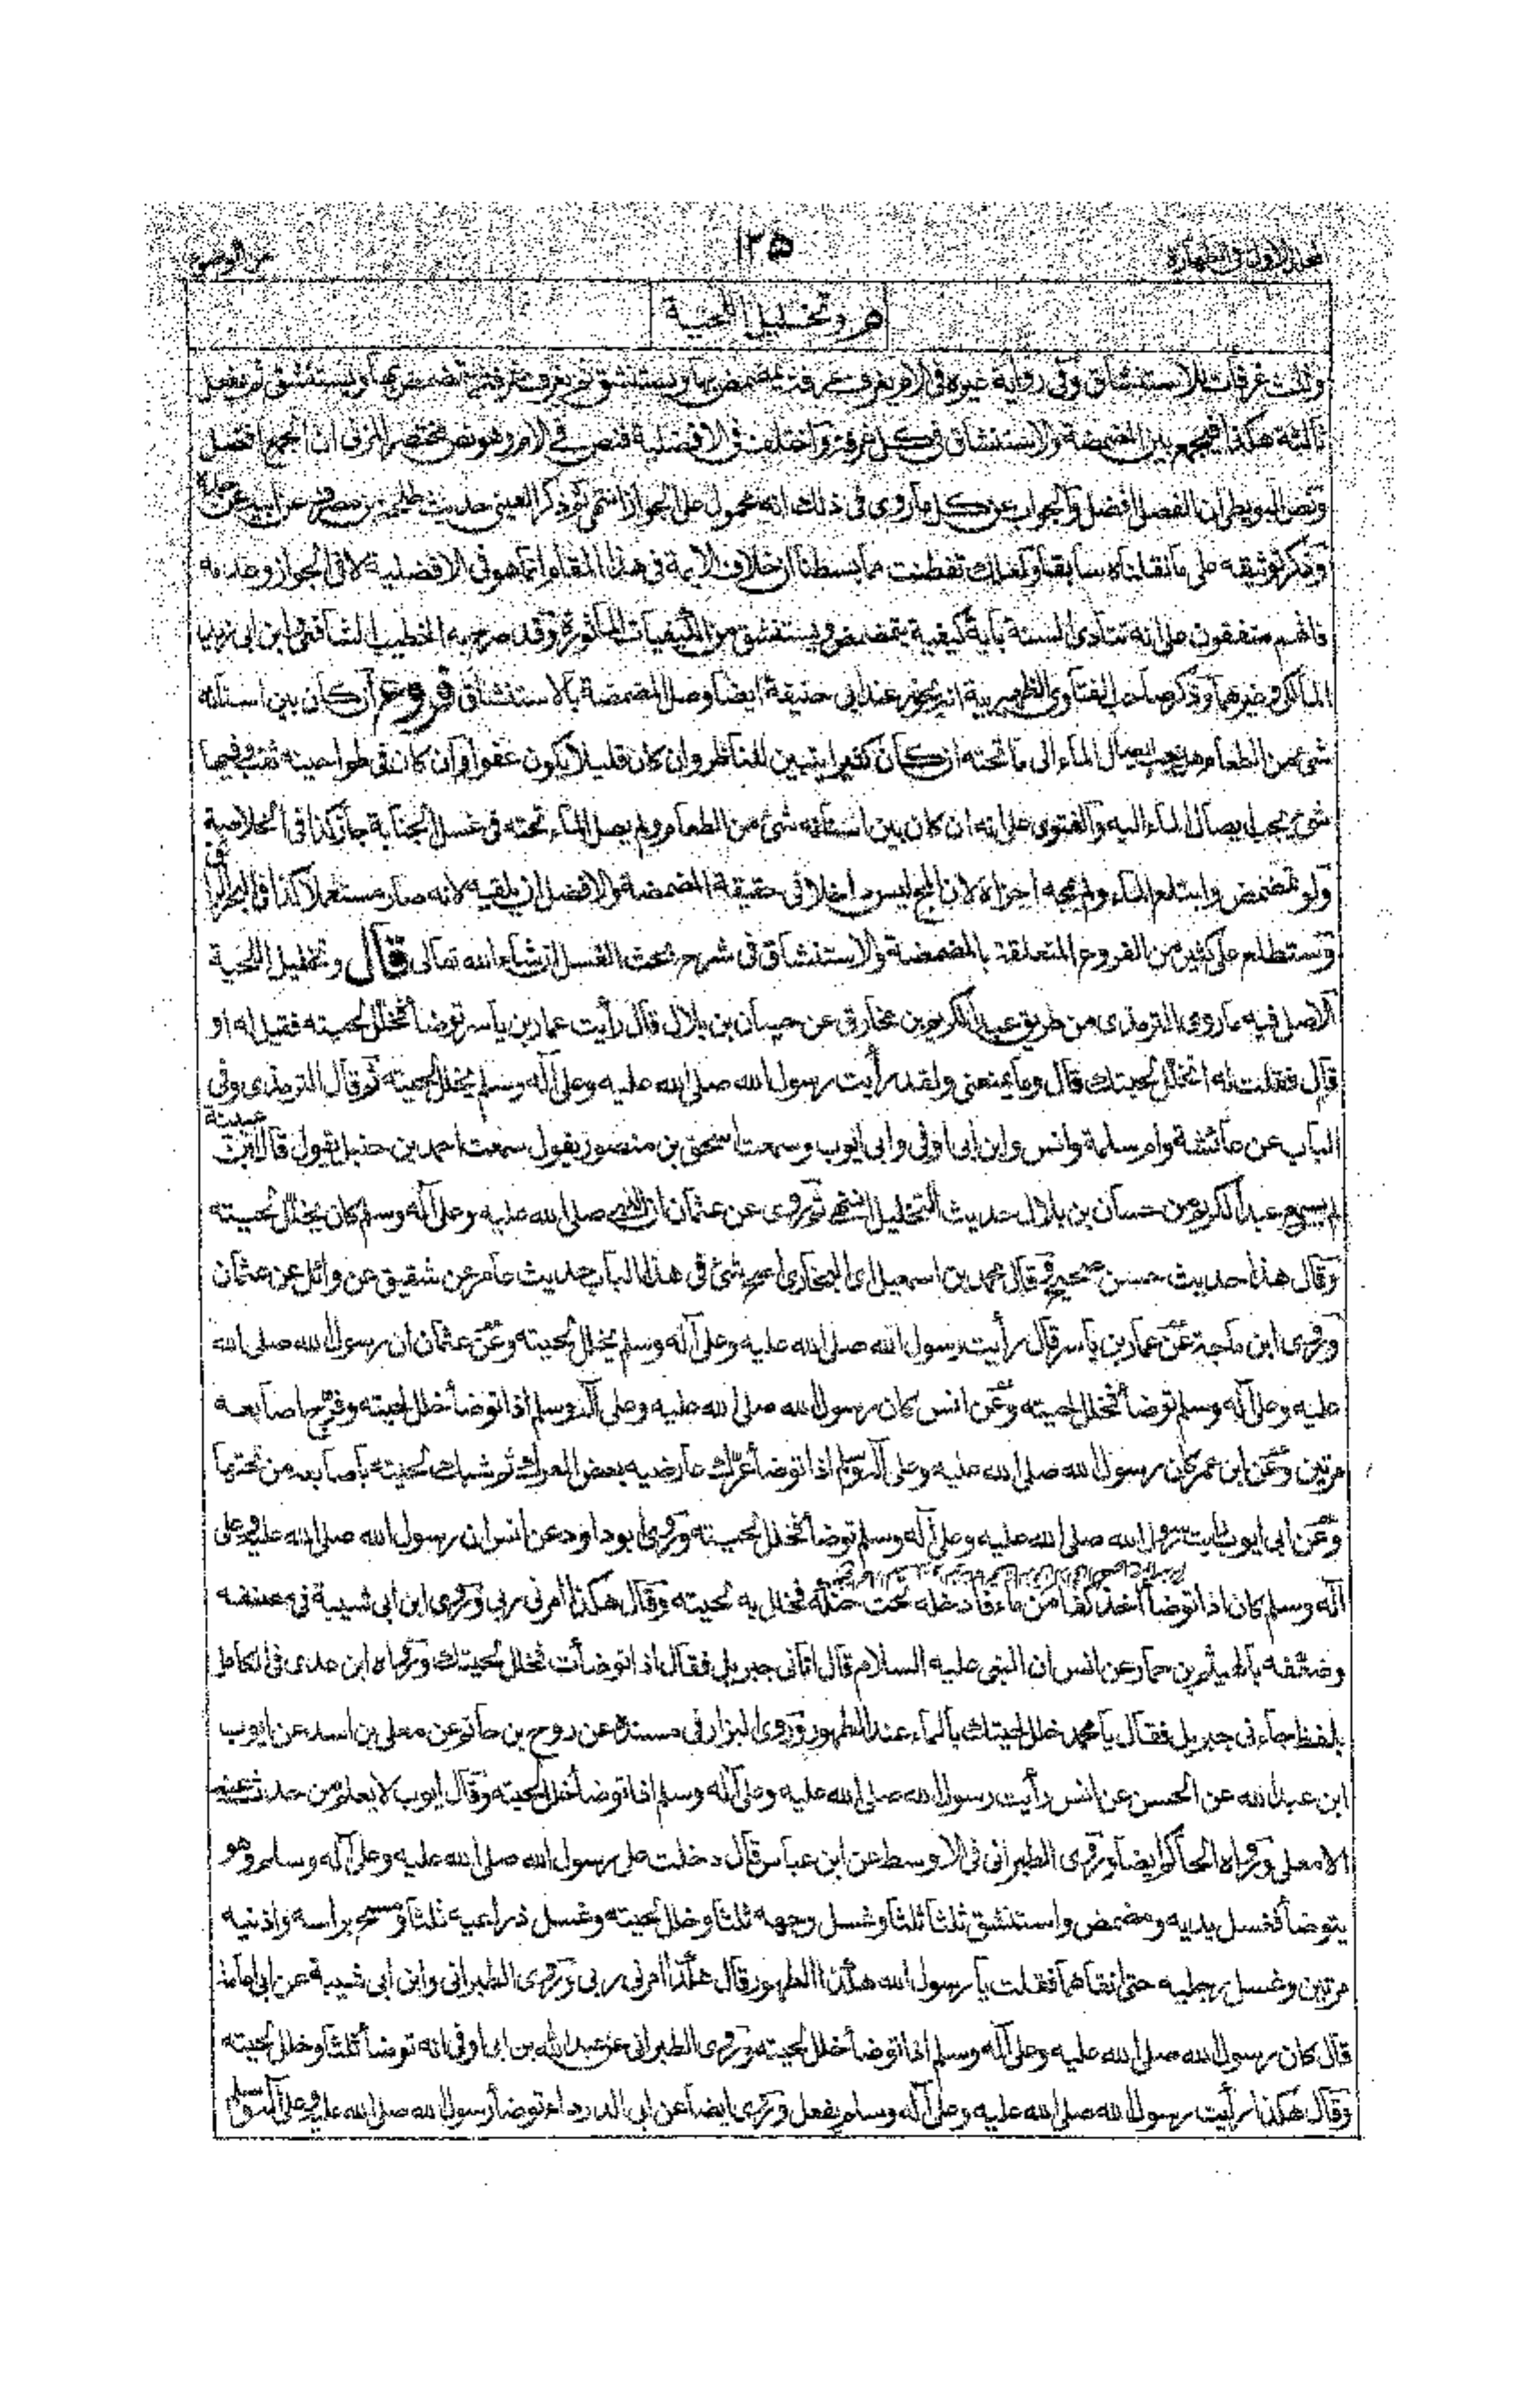 ١٣٥
م وتخليل اللحية
وثلث غرفات للاستنشاق وفى رواية غيره فى الام يغرف غرفة يتمضمض بها ويستنشق ثم يغرف غرفة يتمضمض بها ويستنشق ثم يفعل
ثالثة هكذا فيجمع بين المضمضة والاستنشاق فى كل غرفة واختلف فى الافضلية فنص فى الام وهو نص مختصر المزنى ان الجمع افضل
ونص البويطى ان الفصل افضل والجواب عن كل ما روى فى ذلك انه محمول على الجواز انتهى ثم ذكر العينى حديث طلحة بن مصرف عن ابيه عن جده
وذكر توثيقه على ما نقلناه سابقا ولعلك تفطنت مما بسطنا ان خلاف الائمة فى هذا المقام انما هو فى الافضلية لا فى الجواز وعدمه
فانهم متفقون على انه تتأدى السنة بأية كيفية يتمضمض ويستنشق من الكيفيات المأثورة وقد صرح به الخطيب الشافعى وابن ابى زيد
المالكى وغيرهما وذكر صاحب الفتاوى الظهيرية انه يجوز عند ابى حنيفة ايضا وصل المضمضة بالاستنشاق فروع ان كان بين اسنانه
شئ من الطعام هل يجب ايصال الماء الى ما تحته ان كان كثيرا يتبين للناظر وان كان قليلا يكون عفوا وان كان فى طواحينه ثقب وفيها
شئ يجب ايصال الماء اليه والفتوى على انه ان كان بين اسنانه شئ من الطعام ولم يصل الماء تحته فى غسل الجنابة جاز كذا فى الخلاصة
ولو تمضمض وابتلع الماء ولم يمجه اجزاه لان المج ليس داخلا فى حقيقة المضمضة والافضل ان يلقيه لانه صار مستعملا كذا فى البحر الرائق
وستطلع على كثير من الفروع المتعلقة بالمضمضة والاستنشاق فى شرح بحث الغسل ان شاء الله تعالى قال وتخليل اللحية
الاصل فيه ما روى الترمذى من طريق عبد الكريم بن مخارق عن حسان بن بلال قال رأيت عمار بن ياسر توضأ فخلل لحيته فقيل له او
قال فقلت له اتخلل لحيتك قال وما يمنعنى ولقد رأيت رسول الله صلى الله عليه وعلى آله وسلم يخلل لحيته ثم قال الترمذى وفى
الباب عن عائشة وام سلمة وانس وابن ابى اوفى وابى ايوب وسمعت اسحق بن منصور يقول سمعت احمد بن حنبل يقول قال ابن عيينة
لم يسمع عبد الكريم من حسان بن بلال حديث التخليل انتهى ثم روى عن عثمان ان النبى صلى الله عليه وعلى آله وسلم كان يخلل لحيته
وقال هذا حديث حسن صحيح وقال محمد بن اسمعيل اى البخارى اصح شئ فى هذا الباب حديث عامر عن شقيق عن وائل عن عثمان
وروى ابن ماجة عن عمار بن ياسر قال رأيت رسول الله صلى الله عليه وعلى آله وسلم يخلل لحيته وعن عثمان ان رسول الله صلى الله
عليه وعلى آله وسلم توضأ فخلل لحيته وعن انس كان رسول الله صلى الله عليه وعلى آله وسلم اذا توضأ خلل لحيته وفرج اصابعه
مرتين وعن ابن عمر كان رسول الله صلى الله عليه وعلى آله وسلم اذا توضأ عرك عارضيه بعض العرك ثم شبك لحيته بأصابعه من تحتها
وعن ابى ايوب رأيت رسول الله صلى الله عليه وعلى آله وسلم توضأ فخلل لحيته وروى ابو داود عن انس ان رسول الله صلى الله عليه وعلى
آله وسلم كان اذا توضأ اخذ كفا من ماء فأدخله تحت حنكه فخلل به لحيته وقال هكذا امرنى ربى وروى ابن ابى شيبة فى مصنفه
وضعفه بالهيثم بن حماد عن انس ان النبى عليه السلام قال اتانى جبريل فقال اذا توضأت فخلل لحيتك ورواه ابن عدى فى الكامل
بلفظ جاءنى جبريل فقال يا محمد خلل لحيتك بالماء عند الطهور وروى البزار فى مسنده عن روح بن حاتم عن معلى بن اسد عن ايوب
ابن عبد الله عن الحسن عن انس رأيت رسول الله صلى الله عليه وعلى آله وسلم اذا توضأ خلل لحيته وقال ايوب لا يعلم من حدث عنه
الا معلى ورواه الحاكم ايضا وروى الطبرانى فى الاوسط عن ابن عباس قال دخلت على رسول الله صلى الله عليه وعلى آله وسلم وهو
يتوضأ فغسل يديه ومضمض واستنشق ثلثا ثلثا وغسل وجهه ثلثا وخلل لحيته وغسل ذراعيه ثلثا ومسح براسه واذنيه
مرتين وغسل رجليه حتى انقاهما فقلت يا رسول الله هكذا الطهور قال هكذا امرنى ربى وروى الطبرانى وابن ابى شيبة عن ابى امامة
قال كان رسول الله صلى الله عليه وعلى آله وسلم اذا توضأ خلل لحيته وروى الطبرانى عن عبد الله بن ابى اوفى انه توضأ ثلثا وخلل لحيته
وقال هكذا رأيت رسول الله صلى الله عليه وعلى آله وسلم يفعل وروى ايضا عن ابى الدرداء توضأ رسول الله صلى الله عليه وعلى آله وسلم